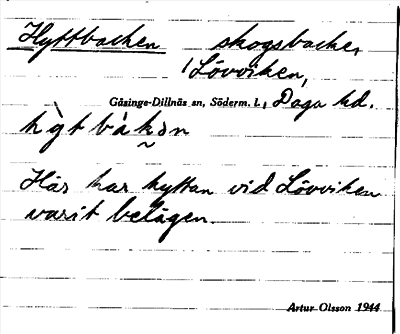 Hyttbacken skogsbacke,
Lövviken,
Gåsinge-Dillnäs sn, Söderm. l., Daga hd.
Här har hyttan vid Lövviken
varit belägen.
Artur Olsson 1944